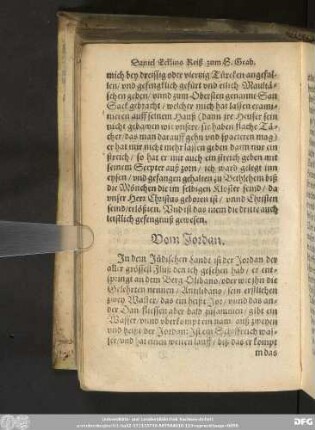 Daniel Ecklins Reiß zum H. Grab.
mich bey dreissig oder viertzig Türcken angefal-
len/ vnd gefengklich gefürt vnd etlich Maultä-
schen geben/ vnnd zum Obersten genannt San
Sack gebracht/ welcher mich hat lassen exami-
nieren auff seinem Hauß (dann jre Heuser sein
nicht gehawen wie vnsere/ sie haben flache Tä-
cher/ das man darauff gehn vnd spacieren mag)
er hat mir nicht mehr lassen geben dann nur ein
streich/ so hat er mir auch ein streich geben mit
seinem Scepter auß zorn/ ich ward gelegt inn
eysen/ vnd gefangen gehalten zu Bethlehem biß
die Mönchen die im selbigen Kloster seind/ da
vnser Herr Christus geboren ist/ vnnd Christen
seind/ erlößten. Vnd ist das mein die dritte auch
leistlich gefengnuß gewesen.
Vom Jordan.
In dem Jüdischen lande ist der Jordan der
aller grössest Fluß den ich gesehen hab/ er ent-
springt an dem Berg Olibano/ oder wie jhn die
Gelehrten nennen/ Antilibano/ sein erstlichen
zwey Wasser/ das ein heißt Jor/ vnnd das an-
der Dan fliessen aber bald zusammen/ gibt ein
Wasser/ vnnd vberkompt ein nam/ auß zweyen
vnd heißt der Jordan: Ist ein Schiffreich was-
ser/ vnd hat einen weiten lauff/ biß das er kompt
in das